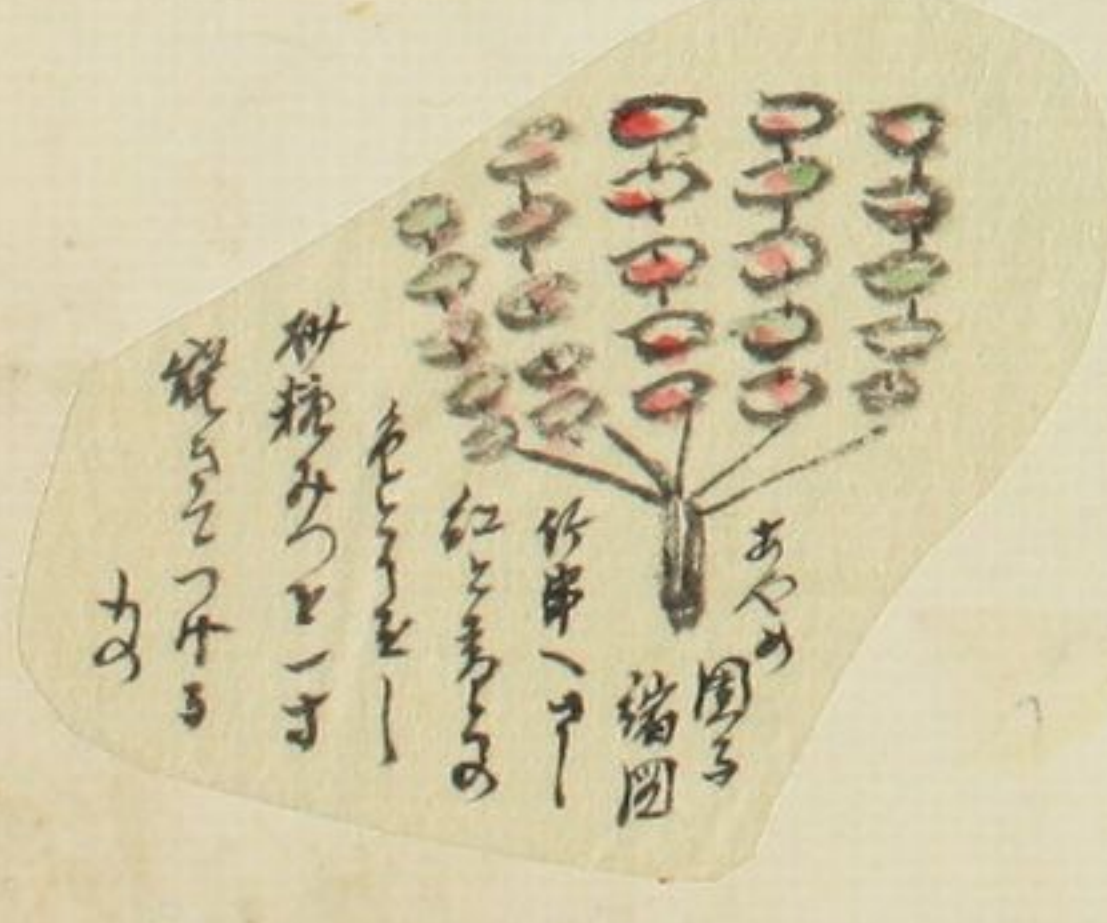 あやめ
團子
縮図
竹串へさし
紅と青との
色とりをし
砂糖みつを一寸
焼きてつける
もの